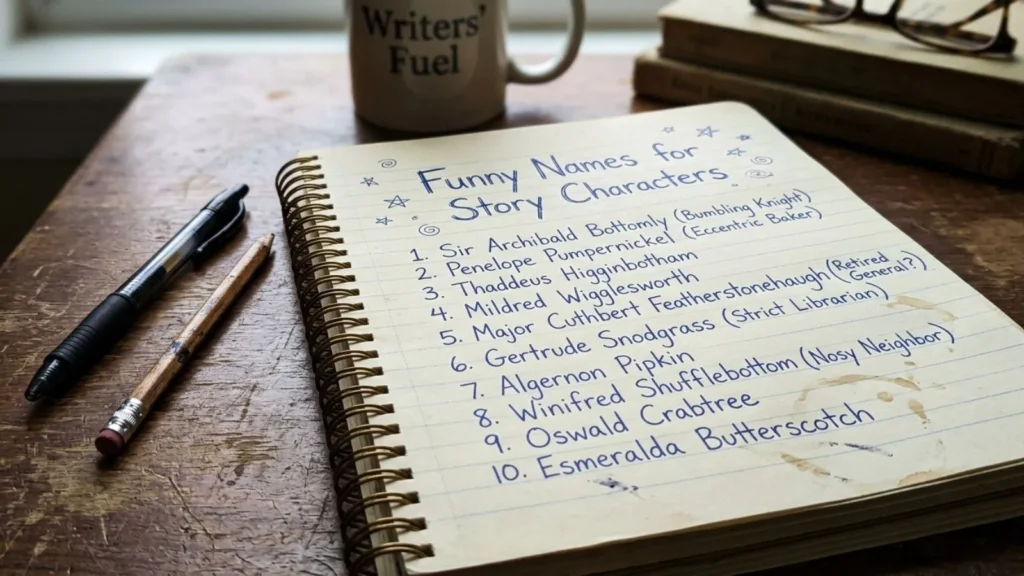 Writers'
Fuel
Funny Names for
Story Characters
1. Sir Archibald Bottomly (Bumbling Knight)
2. Penelope Pumpernickel (Eccentric Baker)
3. Thaddeus Higginbotham
4. Mildred Wigglesworth
5. Major Cuthbert Featherstonehaugh (Retired
General?)
6. Gertrude Snodgrass (Strict Librarian)
7. Algernon Pipkin
8. Winifred Shufflebottom (Nosy Neighbor)
9. Oswald Crabtree
10. Esmeralda Butterscotch